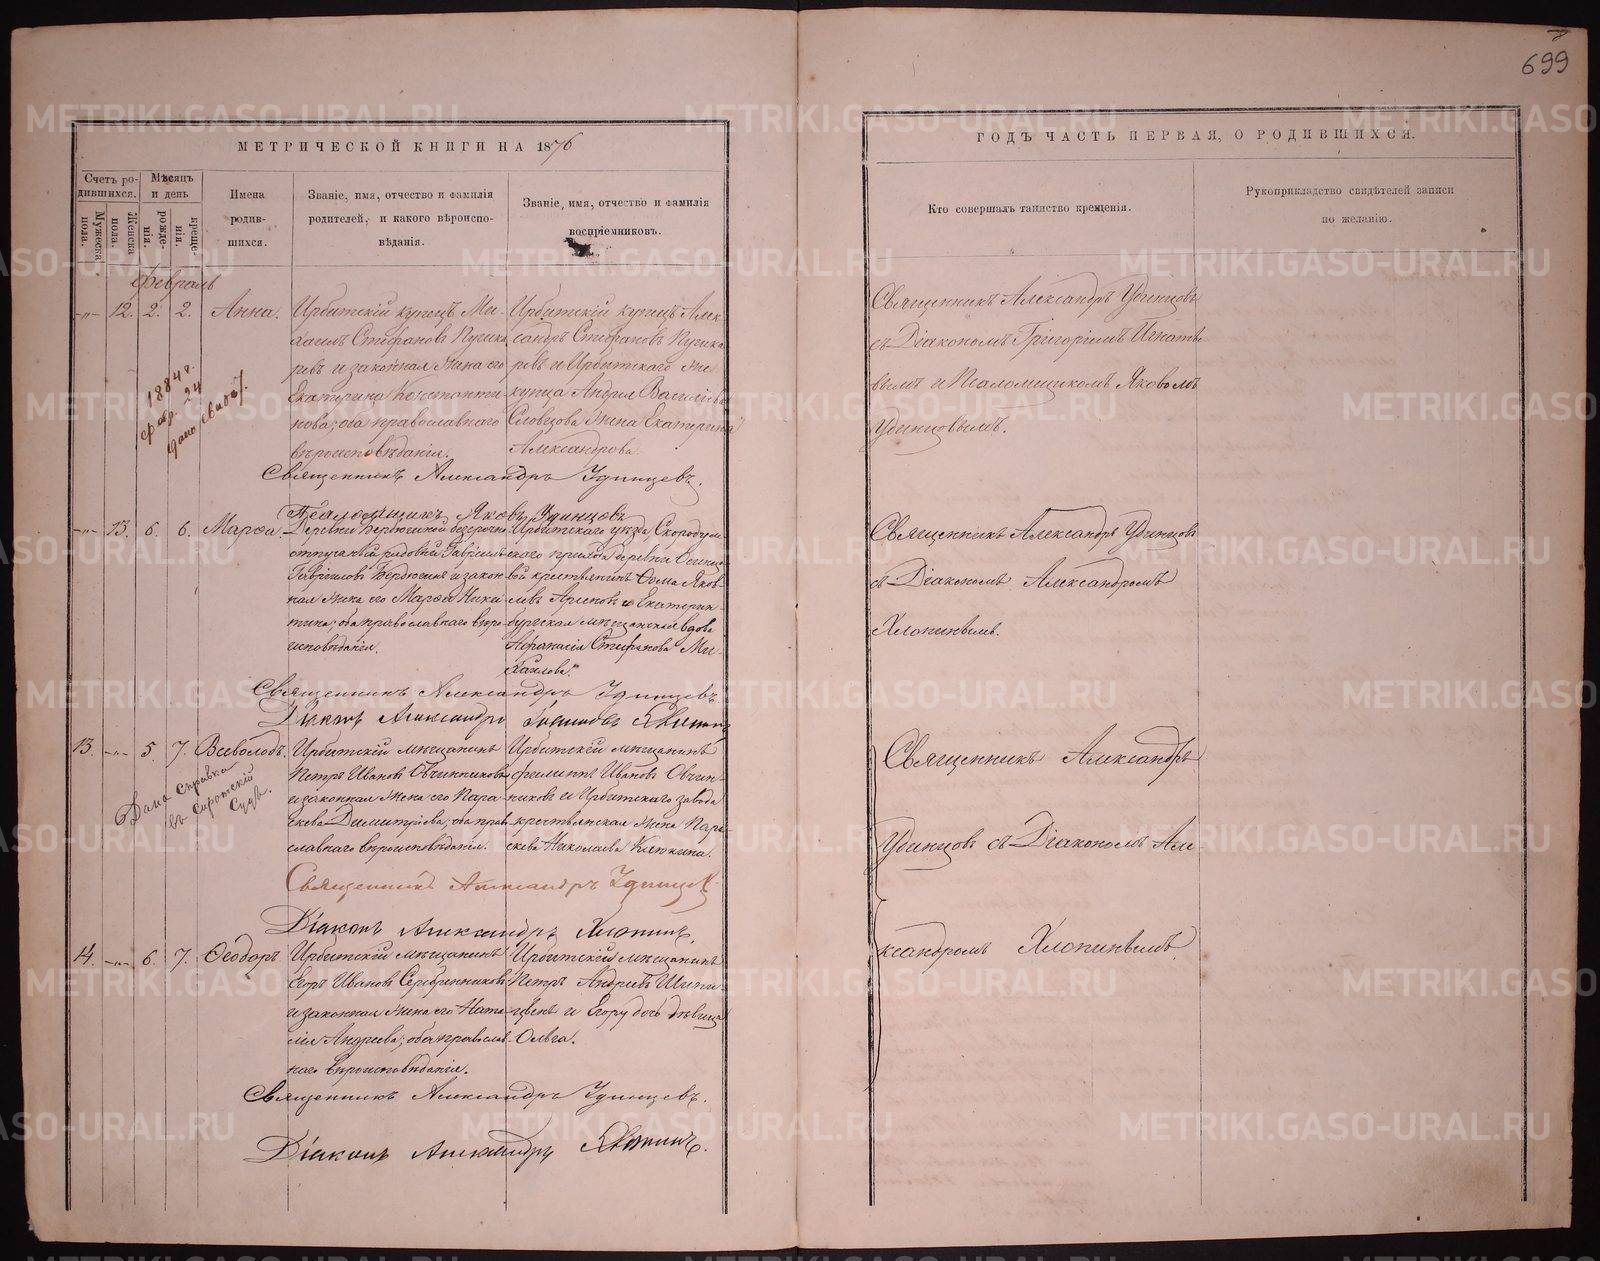 699
МЕТРИЧЕСКОЙ КНИГИ НА 1876
ГОДЪ ЧАСТЬ ПЕРВАЯ, О РОДИВШИХСЯ.
Счетъ ро-
дившихся.
Мужеска
пола.
Женска
пола.
Мѣсяцъ
и день
рожде-
нія.
креще-
нія.
Имена
родив-
шихся.
Званіе, имя, отчество и фамилія
родителей, и какого вѣроиспо-
вѣданія.
Званіе, имя, отчество и фамилія
воспріемниковъ.
Кто совершалъ таинство крещенія.
Рукоприкладство свидѣтелей записи
по желанію.
Февраль
12. 2. 2. Анна.
Ирбитскій купецъ Ми-
хаилъ Стефановъ
и законная жена его
Екатерина Константи-
нова; оба православнаго
вѣроисповѣданія.
Ирбитскій купецъ Алек-
сандръ Стефановъ
и Ирбитскаго
купца Андрея Васильева
Словцова жена Екатерина
Александрова.
Священникъ Александръ Удинцовъ
съ Діакономъ Григоріемъ Игнать-
вымъ и Псаломщикомъ Яковомъ
Удинцовымъ.
1884 г.
Февр. 24
дано свид.
Священникъ Александръ Удинцевъ.
Псаломщикъ Яковъ Удинцовъ
13. 6. 6. Марѳа
Деревни Бердюгиной безсрочно
отпускной рядовой Гавріилъ
Гавріиловъ Бердюгинъ и закон-
ная жена его Марѳа Ники-
тина; оба православнаго вѣро-
исповѣданія.
Ирбитскаго уѣзда Скородум-
скаго прихода деревни
крестьянинъ Ѳома Яков-
левъ и Екатерин-
бургская мѣщанская вдова
Афанасія Стефанова Ми-
хайлова.
Священникъ Александръ Удинцовъ
съ Діакономъ Александромъ
Хлопинымъ.
Священникъ Александръ Удинцевъ
Діаконъ Александръ Хлопинъ
13. 5. 7. Всеволодъ.
Ирбитскій мѣщанинъ
Петръ Ивановъ Овчинниковъ
и законная жена его Пара-
скева Димитріева; оба право-
славнаго вѣроисповѣданія.
Ирбитскій мѣщанинъ
Филиппъ Ивановъ Овчин-
никовъ и Ирбитскаго завода
крестьянская жена Пара-
скева Николаева
Священникъ Александръ
Удинцовъ съ Діакономъ Але-
ксандромъ Хлопинымъ.
Дана справка
въ Сиротскій
Судъ.
Священникъ Александръ Удинцевъ
Діаконъ Александръ Хлопинъ.
14. 6. 7. Ѳеодоръ.
Ирбитскій мѣщанинъ
Егоръ Ивановъ Серебренниковъ
и законная жена его Ната-
лія Андреева; оба православ-
наго вѣроисповѣданія.
Ирбитскій мѣщанинъ
Петръ Андреевъ Шипи-
цинъ и Егору дочь дѣвица
Ольга.
Священникъ Александръ Удинцевъ.
Діаконъ Александръ Хлопинъ.
METRIKI.GASO-URAL.RU